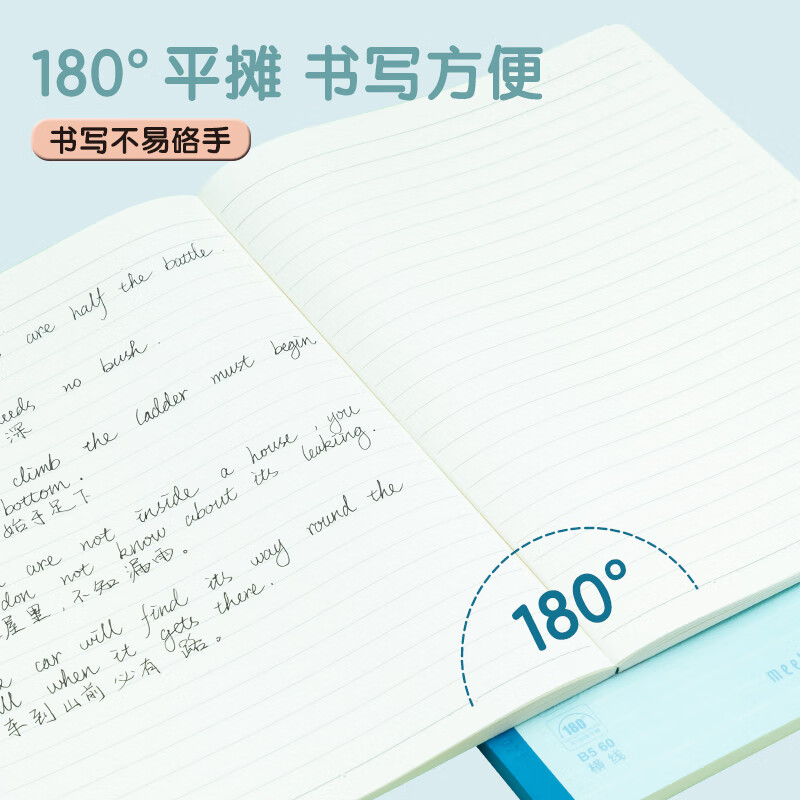 180° 平摊 书写方便
书写不易硌手
are half the battle.
needs no bush.
深
climb the ladder must begin
bottom.
始于足下
are not inside a house, you
don not know about its leaking.
屋里,不知漏雨。
car will find its way round the
when it gets there.
车到山前必有路。
180°
180°
B5 60
横线